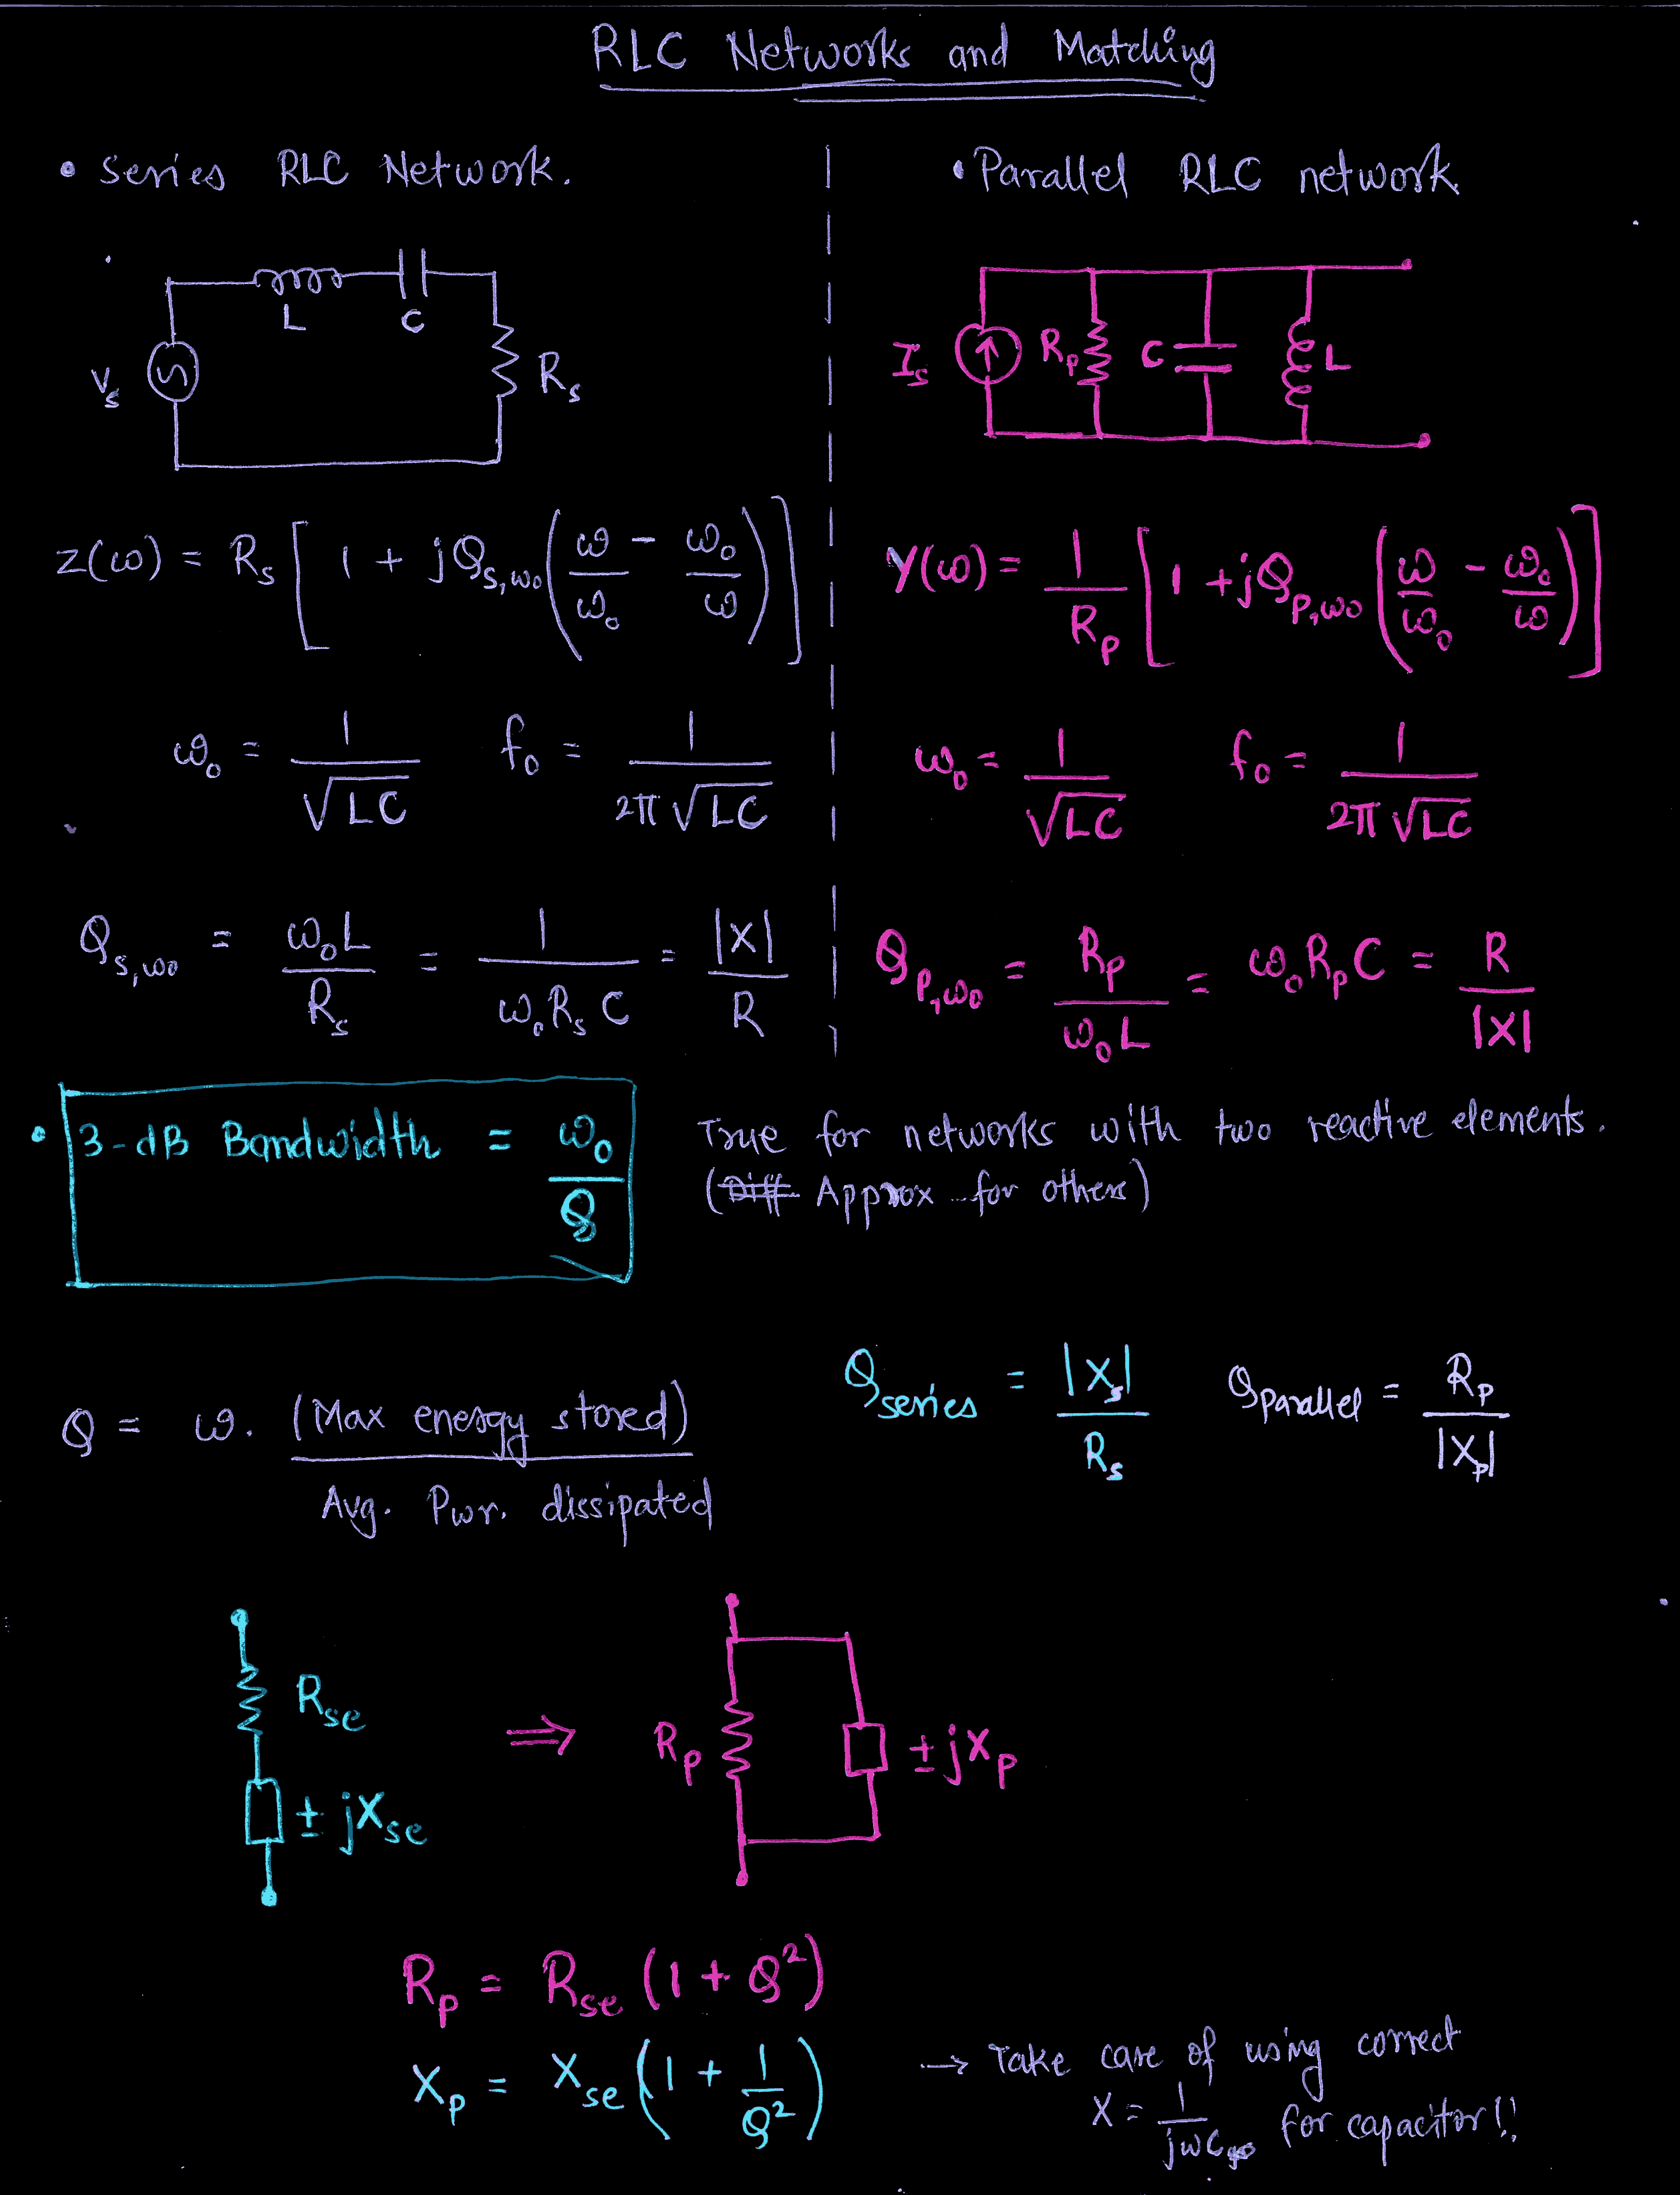 RLC Networks and Matching
• Series RLC Network.
L C
V_s R_s
Z(ω) = R_s [ 1 + jQ_{s,ω₀} ( ω/ω₀ - ω₀/ω ) ]
ω₀ = 1/√LC f₀ = 1/2π√LC
Q_{s,ω₀} = ω₀L/R_s = 1/ω₀R_sC = |X|/R
• Parallel RLC network
I_s R_p C L
Y(ω) = 1/R_p [ 1 + jQ_{p,ω₀} ( ω/ω₀ - ω₀/ω ) ]
ω₀ = 1/√LC f₀ = 1/2π√LC
Q_{p,ω₀} = R_p/ω₀L = ω₀R_pC = R/|X|
• 3-dB Bandwidth = ω₀/Q
True for networks with two reactive elements.
(Diff Approx for others)
Q = ω. (Max energy stored)/Avg. Pwr. dissipated
Q_series = |X_s|/R_s Q_parallel = R_p/|X_p|
R_se
± jX_se
⇒
R_p ± jX_p
R_p = R_se (1 + Q²)
X_p = X_se (1 + 1/Q²)
→ Take care of using correct
X = 1/jωC for capacitor!!